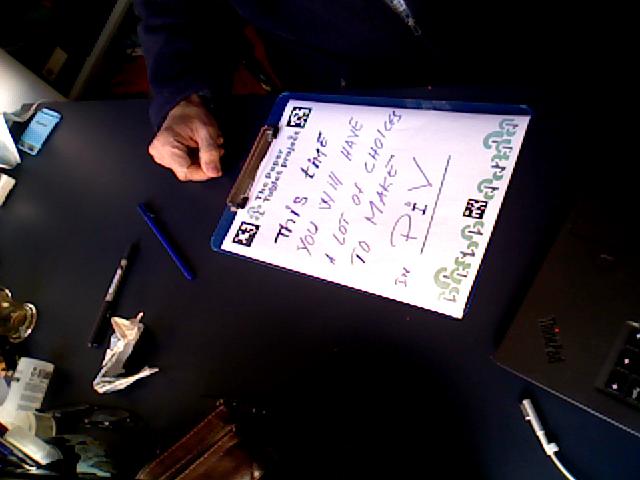 The Paper
Tables projekt
This time
YOU WILL HAVE
A LOT OF CHOICES
TO MAKE
IN PiV
ThinkPad